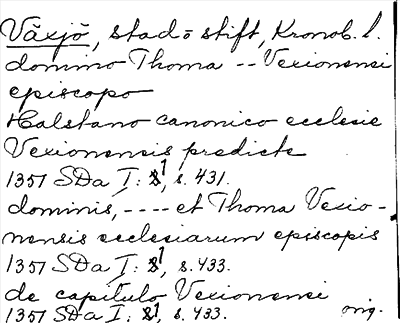 Växjö, stad o stift, Kronob. l.
domino Thoma -- Vexionensi
episcopo
Halstano canonico ecclesie
Vexionensis predicte
1351 SDa I: 1, s. 431.
dominis, ---- et Thoma Vexio-
nensis ecclesiarum episcopis
1351 SDa I: 1, s. 433.
de capitulo Vexionensi
1351 SDa I: 1, s. 433. orig.